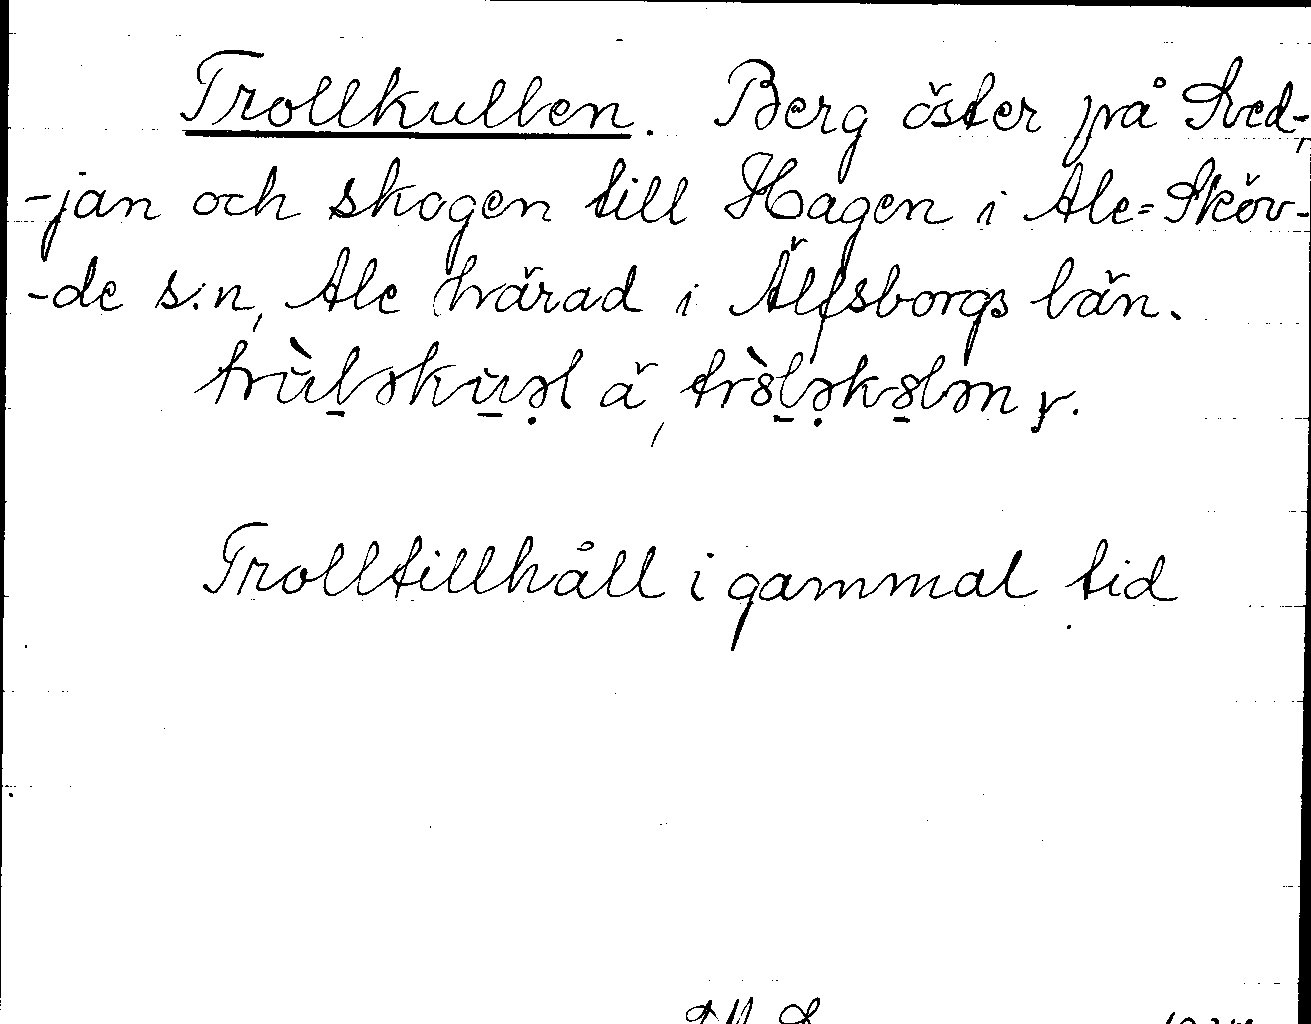 Trollkullen. Berg öster på Sved-
-jan och skogen till Hagen i Ale-Sköv-
-de s:n, Ale härad i Älfsborgs län.
Trolltillhåll i gammal tid